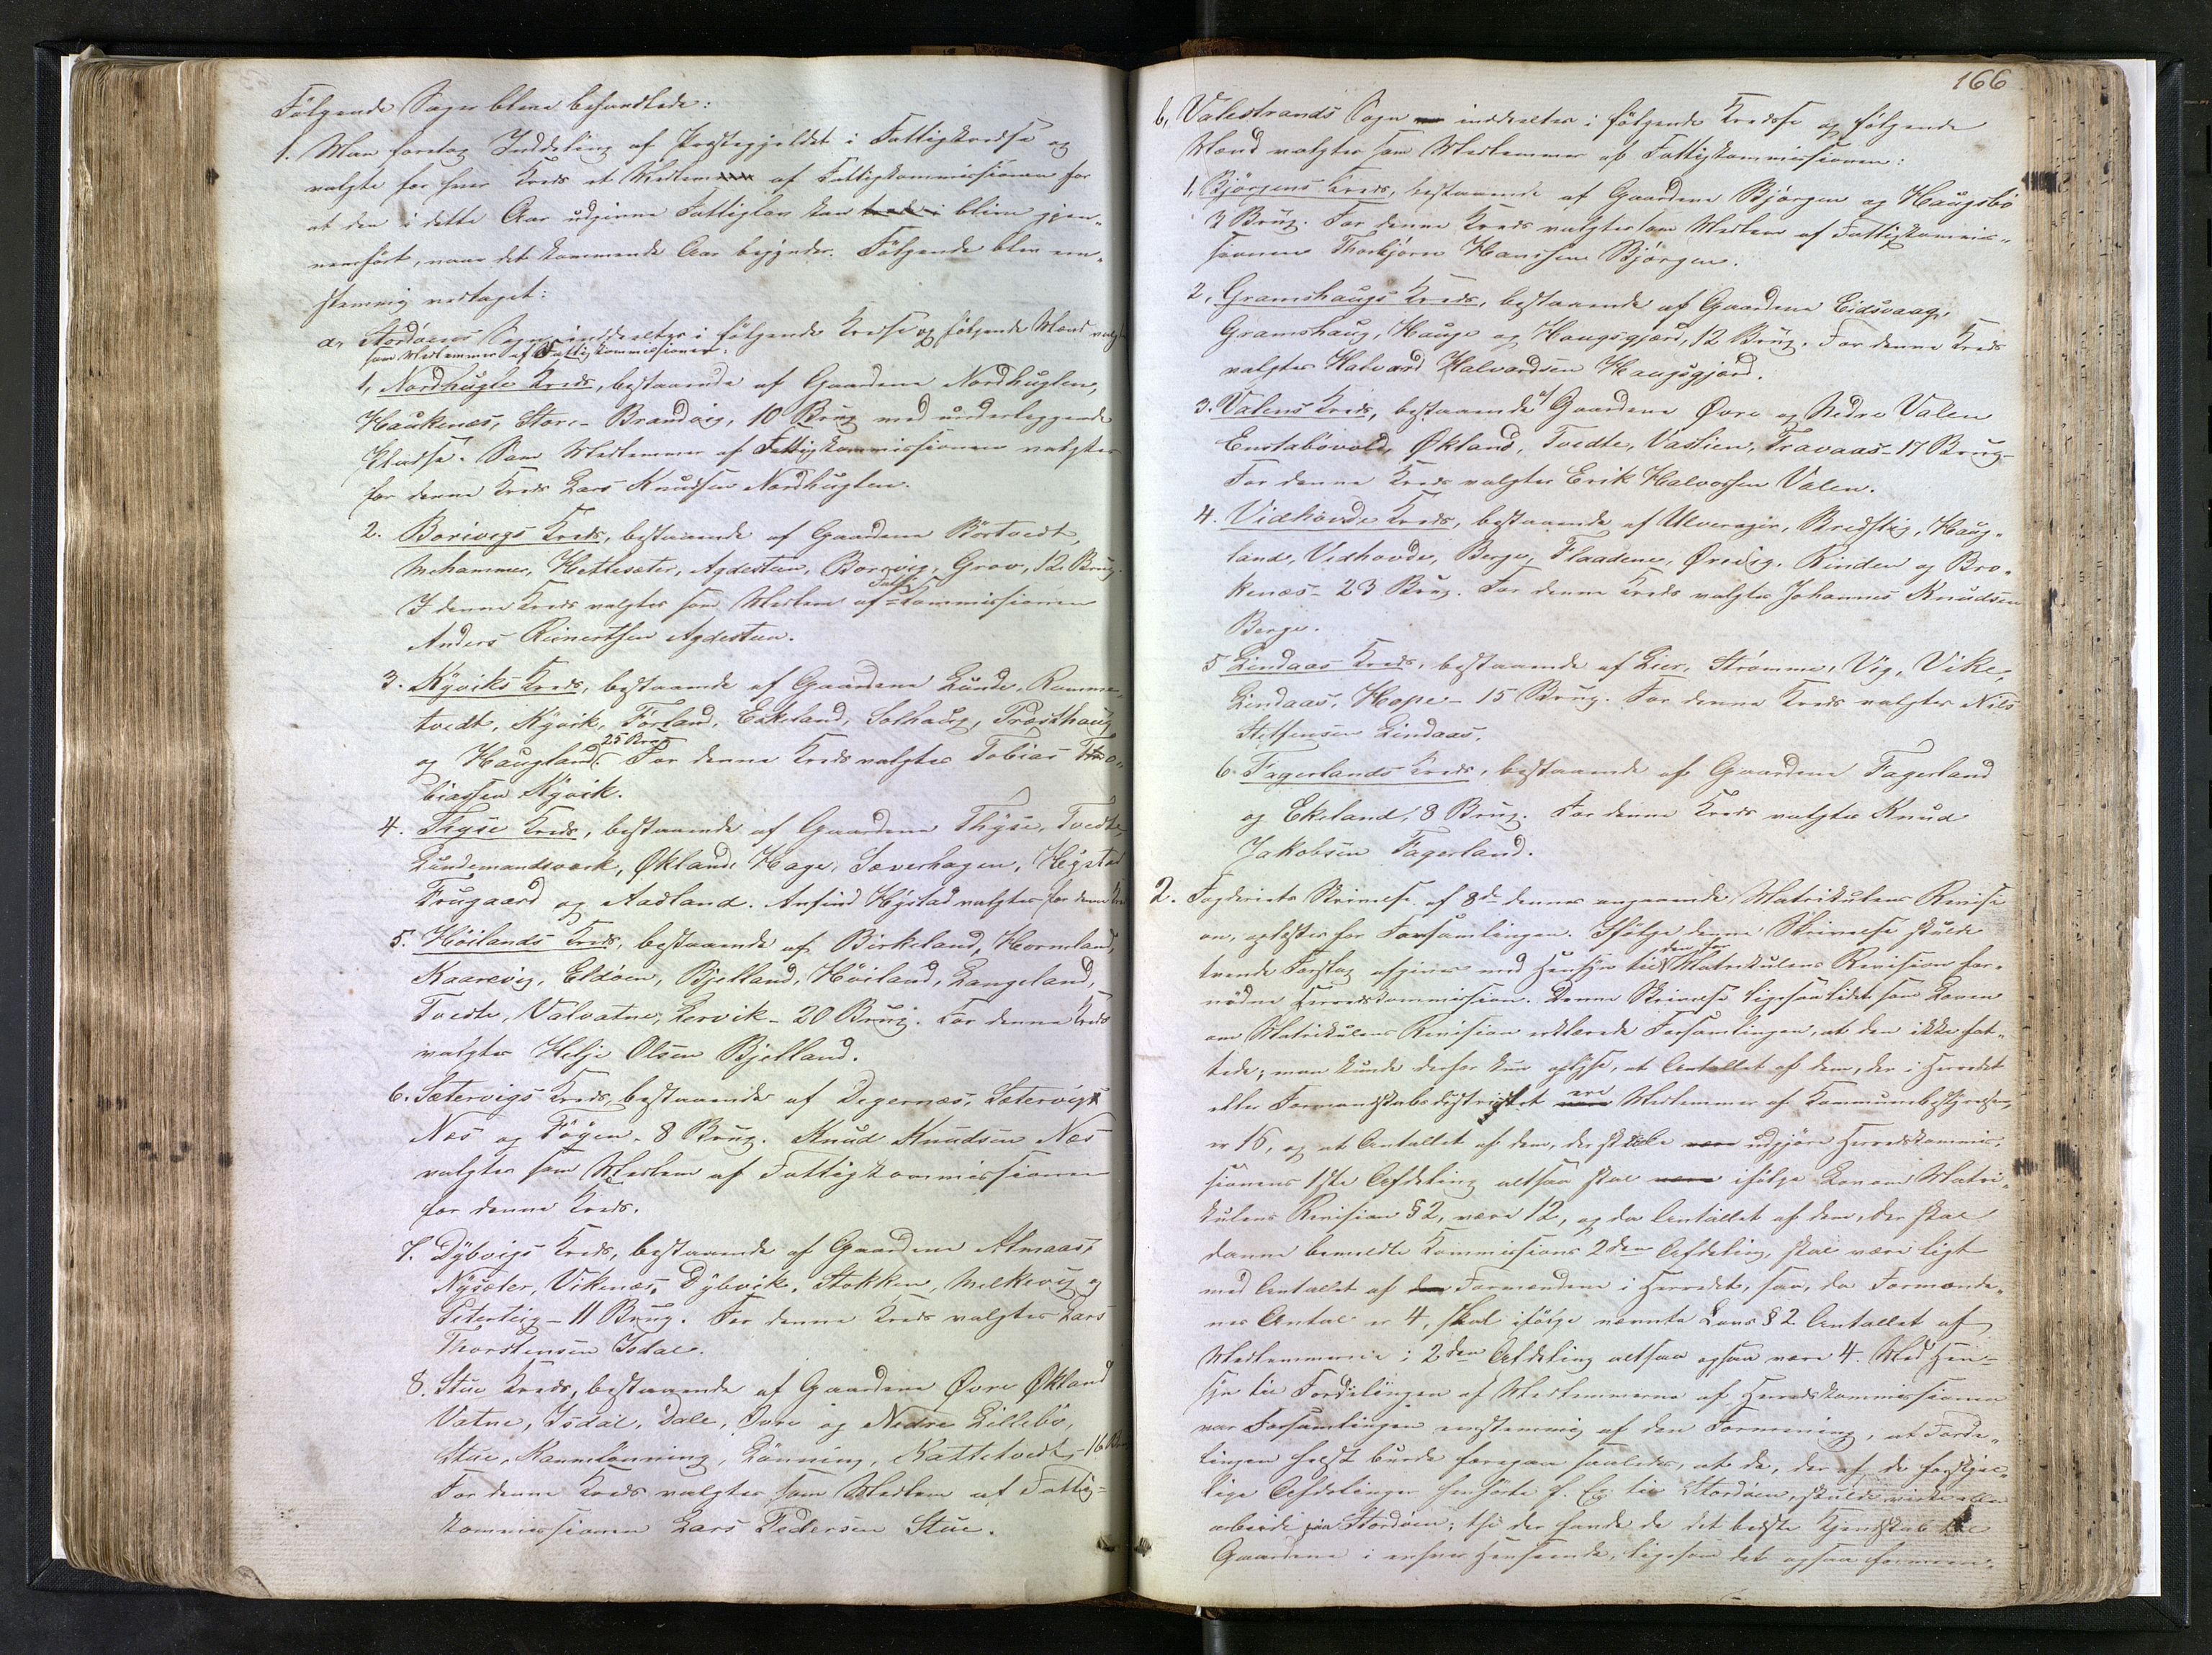 Følgende Sager bleve behandlede:
1. Man foretog Inddeling af Præstegjeldet i Fattigkredse og
valgte for hver Kreds et Medlem af Fattigkommissionen for
at den i dette Aar udgivne Fattiglov kan blive gjen-
nemført, naar det kommende Aar begynder. Følgende blev een-
stemmig vedtaget:
a, Stordøens Sogn inddeeltes i følgende Kredse og følgende Mænd valgtes
som Medlemmer af Fattigkommissionen.
1, Nordhugle Kreds, bestaaende af Gaardene Nordhuglen,
Haukenæs, Store-Brandvig, 10 Brug med underliggende
Pladse. Som Medlemmer af Fattigkommissionen valgtes
for denne Kreds Lars Knudsen Nordhuglen.
2. Borivigs Kreds, bestaaende af Gaardene Børtvedt,
Mehammer, Hettesæter, Agdesteen, Borevig, Grov, 12 Brug.
I denne Kreds valgtes som Medlem af Fattig-Kommissionen
Anders Reinertsen Agdesteen.
3. Kyviks Kreds, bestaaende af Gaardene Lunde, Romme-
tvedt, Kyvik, Førland, Eskeland, Solhaug, Præsthaug
og Haugland 25 Brug. For denne Kreds valgtes Tobias To-
biassen Kyvik.
4. Thyse Kreds, bestaaende af Gaardene Thyse, Tvedte,
Lundemandsværk, Økland, Hage, Sæverhagen, Hystad
Frugaard og Aadland. Anfind Hystad valgtes for denne Kreds
5. Høilands Kreds, bestaaende af Birkeland, Horneland,
Kaarevig, Eldøen, Bjelland, Høiland, Langeland,
Tvedte, Valvatne, Lervik - 20 Brug. For denne Kreds
valgtes Helje Olsen Bjelland.
6. Sætervigs Kreds, bestaaende af Digernæs, Sætervig,
Næs og Føyen, 8 Brug. Knud Knudsen Næs
valgtes som Medlem af Fattigkommissionen
for denne Kreds.
7. Dybvigs Kreds, bestaaende af Gaardene Almaas,
Nysæter, Vikenæs, Dybvik, Stokken, Melkevig og
Peterteig - 11 Brug. For denne Kreds valgtes Lars
Thorstensen Isdal.
8. Stue Kreds, bestaaende af Gaardene Øvre Økland
Vatne, Isdal, Dale, Øvre og Nedre Lillebø,
Stue, Rannelønning, Lønning, Kattetvedt - 16 Brug
For denne Kreds valgtes som Medlem af Fattig-
kommissionen Lars Pedersen Stue.
166
b, Valestrands Sogn inddeeltes i følgende Kredse og følgende
Mænd valgtes som Medlemmer af Fattigkommissionen:
1, Bjørgens Kreds, bestaaende af Gaardene Bjørgen og Haugsbø
3 Brug. For denne Kreds valgtes som Medlem af Fattigkommis-
sionen Thorbjørn Hanssen Bjørgen.
2, Gramshaugs Kreds, bestaaende af Gaardene Eidsvaag,
Gramshaug, Hauge og Haugsgjærd, 12 Brug. For denne Kreds
valgtes Halvard Halvardsen Haugsgjærd.
3. Valens Kreds, bestaaende af Gaardene Øvre og Nedre Valen
Enstabøvold, Økland, Tvedte, Vastien, Travaas - 17 Brug -
For denne Kreds valgtes Erik Halvorsen Valen.
4. Vidhovde Kreds, bestaaende af Ulverager, Bredstig, Haug-
land, Vidhovde, Berge, Fladene, Ørevig, Rinden og Bro-
kenæs - 23 Brug. For denne Kreds valgtes Johannes Knudsen
Berge.
5 Lindaas Kreds, bestaaende af Lier, Strømme, Vig, Vike,
Lindaas, Hope - 15 Brug. For denne Kreds valgtes Nils
Steffensen Lindaas.
6. Fagerlands Kreds, bestaaende af Gaardene Fagerland
og Ekeland, 8 Brug. For denne Kreds valgtes Knud
Jakobsen Fagerland.
2. Fogderiets Skrivelse af 8de dennes angaaende Matrikulens Revisi-
on, oplæstes for Forsamlingen. Ifølge denne Skrivelse skulde
Forslag afgives med Hensyn til den for Matrikulens Revision for-
nødne Herredskommission. Denne Skrivelse ligesaa lidet som Loven
om Matrikulens Revision erklærede Forsamlingen, at den ikke fat-
tede; man kunde derfor kun oplyse, at Antallet af dem, der i Herredet
eller Formandskabsdistriktet ere Medlemmer af Kommunebestyrelsen,
er 16, og at Antallet af dem, der skulle udgjøre Herredskommis-
sionens 1ste Afdeling altsaa skal ifølge Lov om Matri-
kulens Revision § 2, være 12, og da Antallet af dem, der skal
danne bemeldte Kommissions 2den Afdeling, skal være ligt
med Antallet af Formændene i Herredet, saa, da Formænde-
nes Antal er 4, skal ifølge nævnte Lovs § 2 Antallet af
Medlemmerne i 2den Afdeling altsaa ogsaa være 4. Med Hen-
syn til Fordelingen af Medlemmerne af Herredskommissionen
var Forsamlingen eenstemmig af den Formening, at Forde-
lingen helst burde foregaa saaledes, at de, der af de forskjel-
lige Afdelinger henhørte f. Ex. til Stordøen, skulde virke eller
arbeide paa Stordøen; thi der havde de det bedste Kjendskab til
Gaardene i enhver Henseende, ligesom det ogsaa formeen-